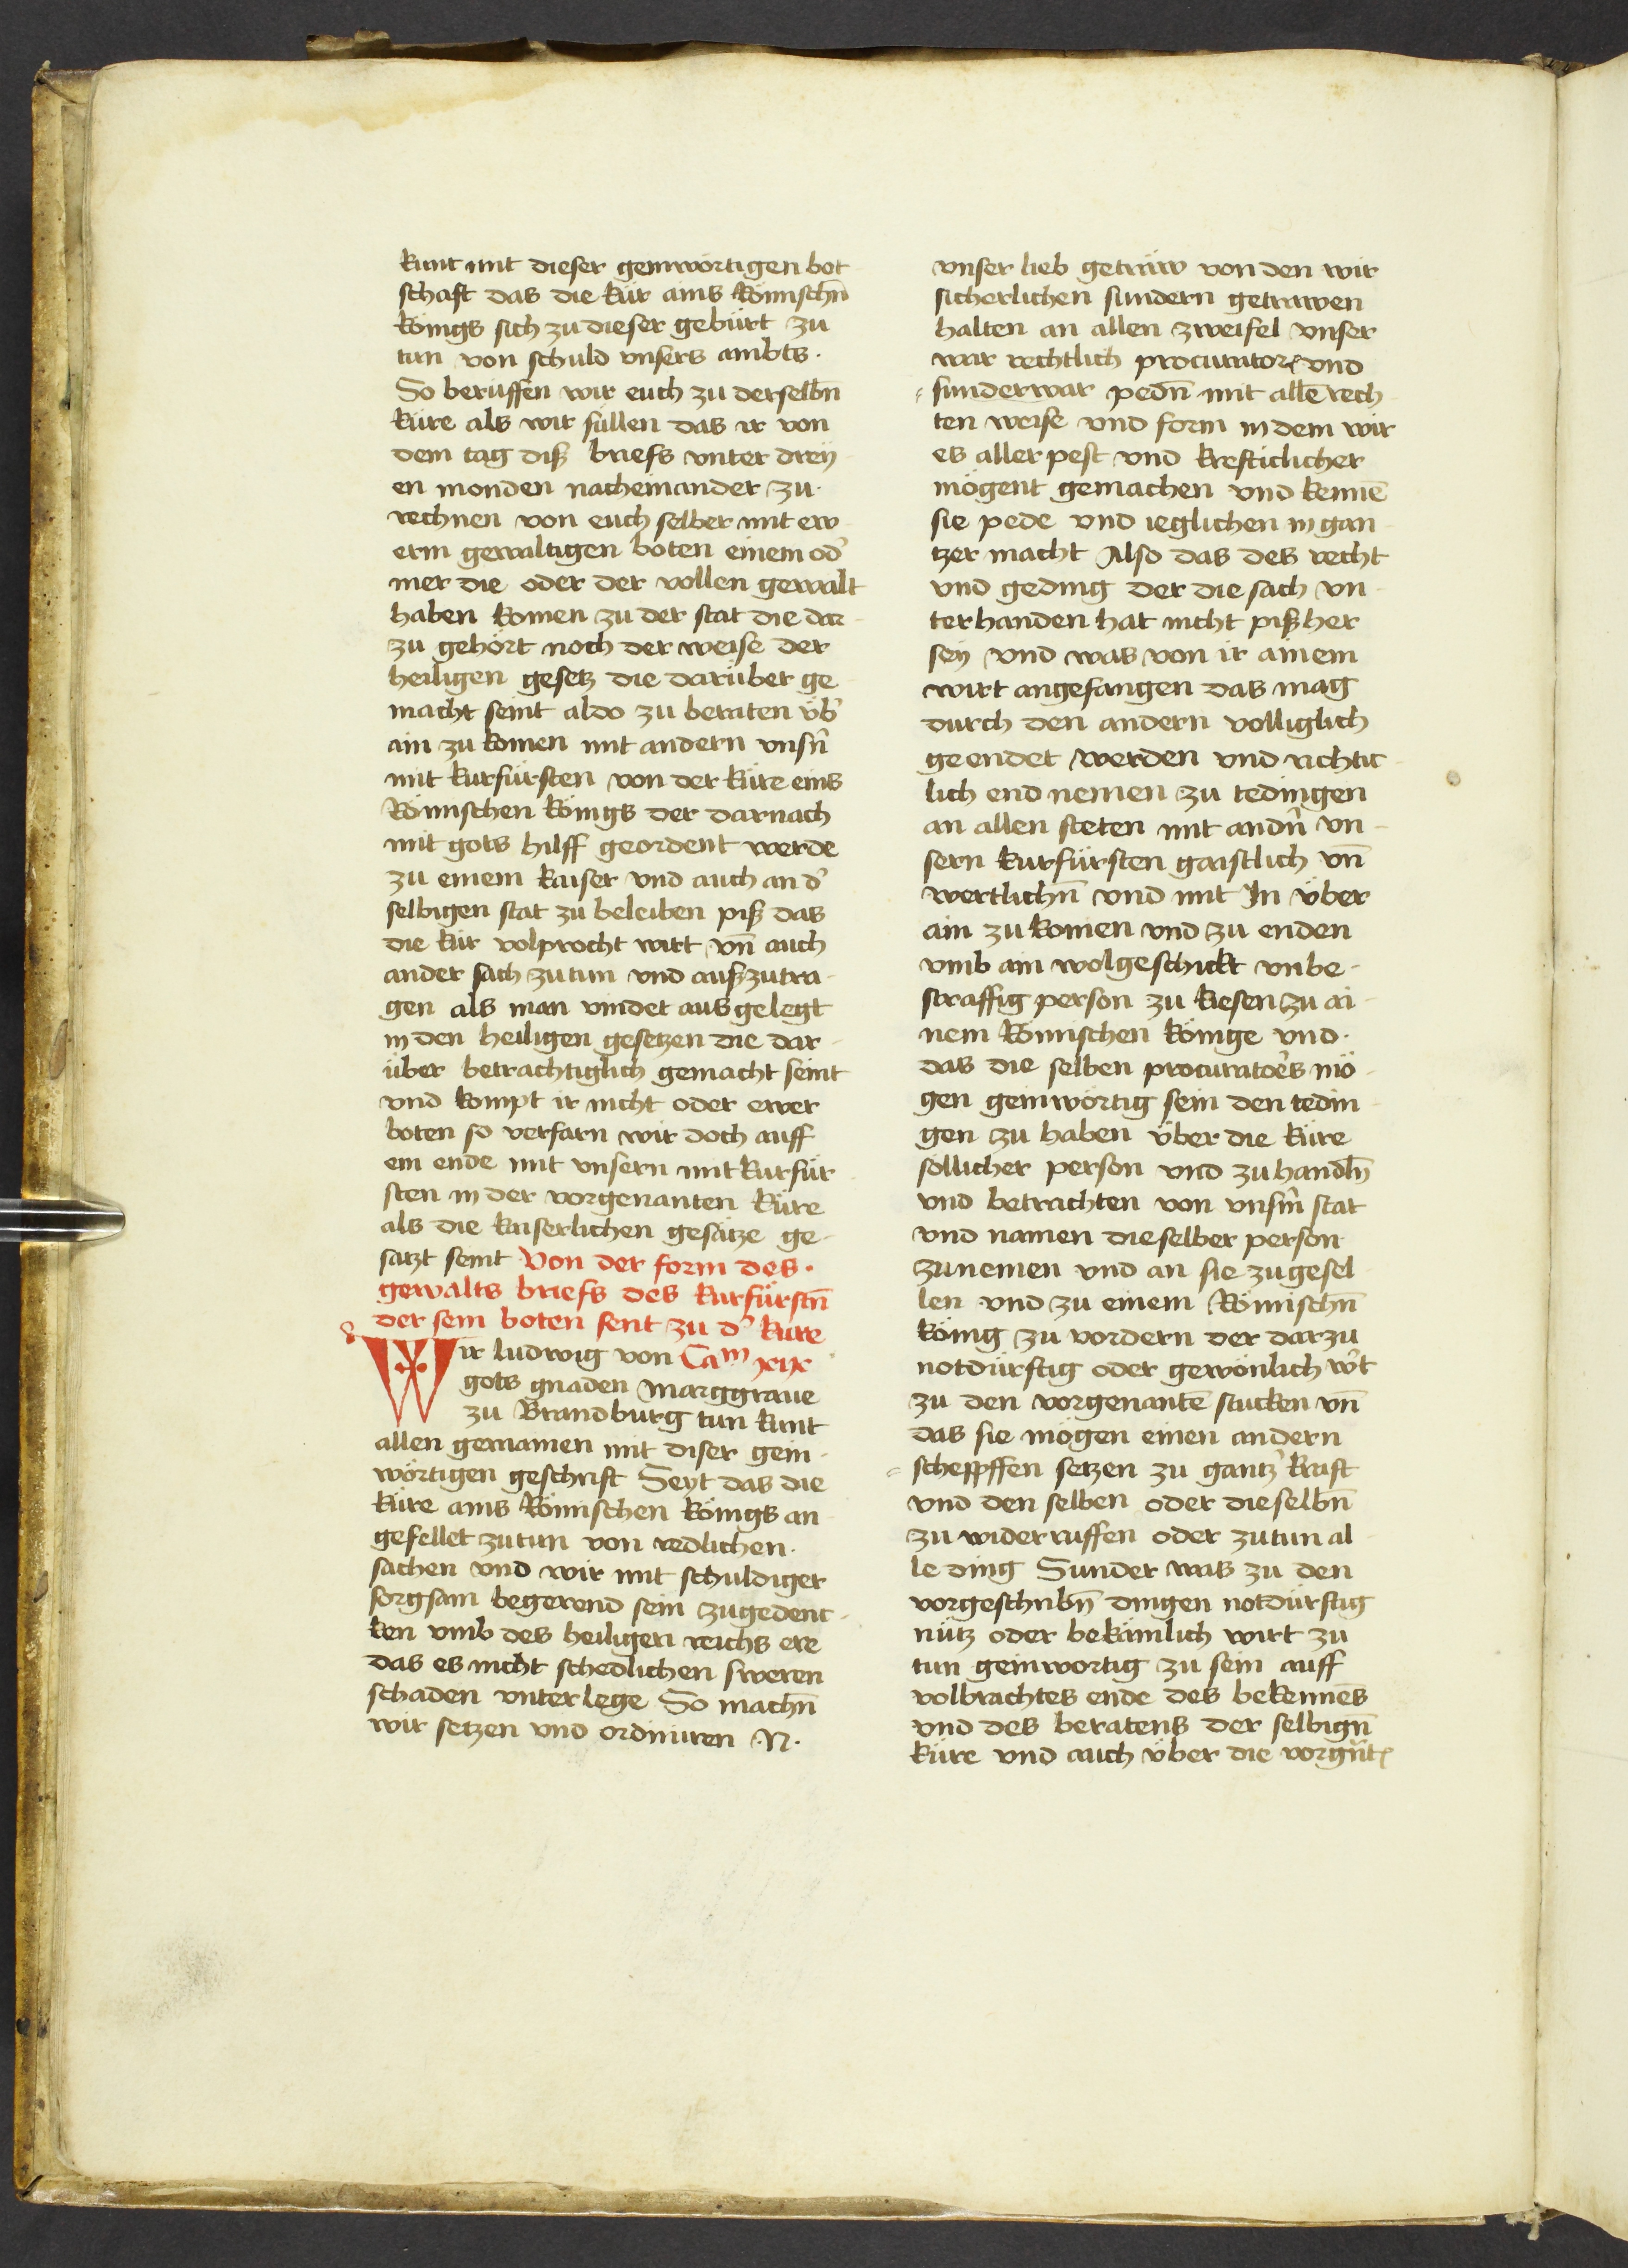 kunt mit dieser gemwörtigen bot
schaft das die kür ains Römischn̄
königs sich zu dieser gebürt zu
tun von schuld vnsers ambts.
So berüffen wir euch zu derselbn̄
küre als wir süllen das ir von
dem tag diß briefs vnter drey
en monden nacheinander zu
rechnen von euch selber mit ew
erm gewaltigen boten einem od'
mer die oder der vollen gewalt
haben komen zu der stat die dar
zu gehört noch der weise der
heiligen gesetz die darüber ge
macht seint aldo zu beraten vb'
ain zu komen mit andern vnsn̄
mit kurfürsten von der küre eins
Römischen königs der darnach
mit gots hilff geordent werde
zu einem kaiser vnd auch an d'
selbigen stat zu beleiben piß das
die kür volprocht wirt vn̄ auch
ander sach zutun vnd außzutra-
gen als man vindet aus gelegt
in den heiligen gesetzen die dar-
über betrachtiglich gemacht seint
vnd kompt ir nicht oder ewer
boten so verfarn wir doch auff
ein ende mit vnsern mit kurfür
sten in der vorgenanten küre
als die kaiserlichen gesätze ge-
satzt seint Von der form des.
gewalts briefs des kurfürstn̄
der sein boten sent zu d' kure
Wir ludwig von Caᵐ xix
gots gnaden marggraue
zu Brandburg tun kunt
allen gemainen mit diser gein-
wörtigen geschrift Seyt das die
küre ains Römischen königs an
gefellet zutun von redlichen.
sachen vnd wir mit schuldiger
sorgsam begerend sein zugedenc-
ken vmb des heiligen reichs ere
das es nicht schedlichen sweren
schaden vnterlege So machn̄
wir setzen vnd ordiniren .N.
vnser lieb getrüw von den wir
sicherlichen sundern getrawen
halten an allen zweifel vnser
war rechtlich procurator vnd
sunderwar pedn̄ mit allē rech
ten weise vnd form in dem wir
es aller pest vnd krefticlicher
mögent gemachen vnd kennē
sie pede vnd ieglichen in gan
tzer macht Also das des recht
vnd geding der die sach vn-
terhanden hat nicht pißher
sey vnd was von ir ainem
wirt angefangen das mag
durch den andern volliglich
geendet werden vnd richtic-
lich end nemen zu tedingen
an allen steten mit andn̄ vn-
sern kurfürsten gaistlich vn̄
wertlichn̄ vnd mit In über
ain zu komen vnd zu enden
vmb ain wolgeschickt vnbe-
straffig person zu kiesen zu ai-
nem Römischen könige vnd.
das die selben procuratoēs mö-
gen geinwörtig sein den tedin
gen zu haben über die küre
söllicher person vnd zu handln̄
vnd betrachten von vnsn̄ stat
vnd namen dieselber person
zunemen vnd an sie zugesel
len vnd zu einem Römischn̄
könig zu vordern der darzu
notdürftig oder gewönlich w't
zu den vorgenantē stucken vn̄
das sie mögen einen andern
scheppffen setzen zu gantz' kraft
vnd den selben oder dieselbn̄
zu widerruffen oder zutun al
le ding Sunder was zu den
vorgeschribn̄ dingen notdürftig
nütz oder bekämlich wirt zu
tun geinwortig zu sein auff
volbrachtes ende des bekennēs
vnd des beratens der selbign̄
küre vnd auch über die vorgn̄t